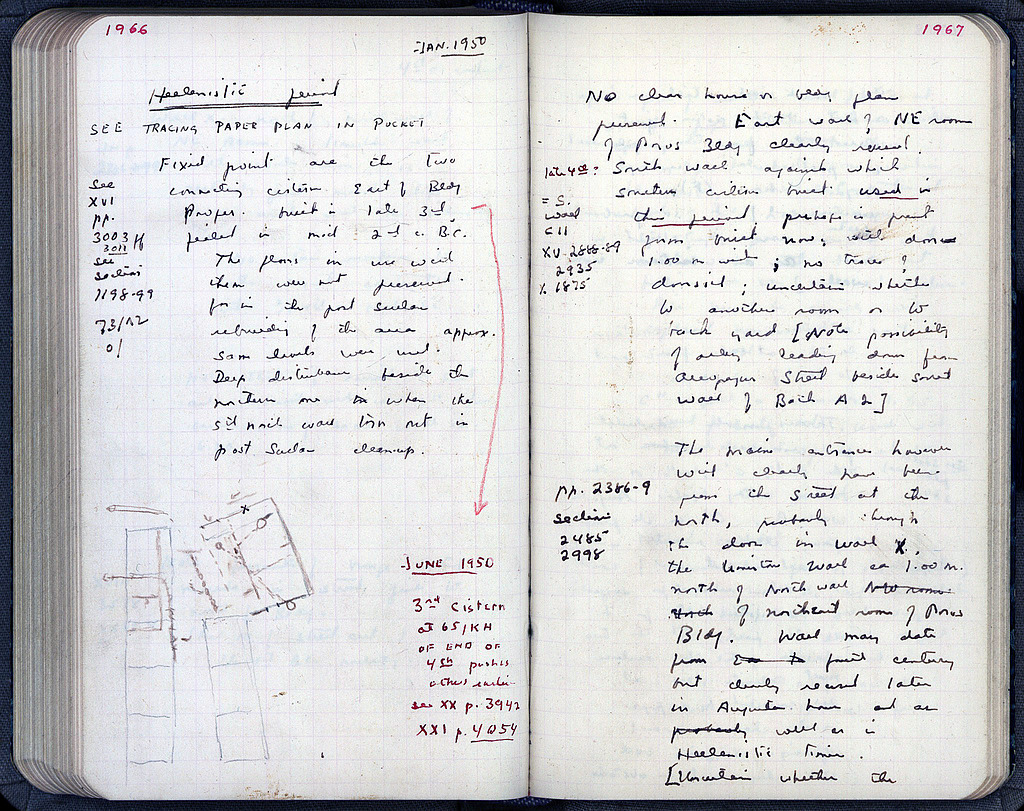 1966
JAN. 1950
Hellenistic period
SEE TRACING PAPER PLAN IN POCKET
Fixed point are the two
connecting cisterns East of Bldg
Proper. built in late 3rd,
filled in mid 2nd c. B.C.
The floors in use with
them were not preserved.
for in the post Sullan
rebuilding of the area approx.
same levels were used.
Deep disturbance beside the
northern one when the
north wall torn out in
post Sullan clean-up.
see
XVI
pp.
3003 ff
3011
see
Section
1198-99
73/
JUNE 1950
3rd Cistern
at 65/KH
OF END OF
4th pushes
others earlier
see XX p. 3942
XXI p. 4054
1967
No clear house or bldg plan
preserved. East wall of NE room
of Poros Bldg clearly reused.
South wall against which
southern cistern built used in
this period perhaps in part
from built now; with door
1.00 m wide; no trace of
doorsill; uncertain whether
to another room or to
back yard [Note possibility
of alley leading down from
Areopagus Street beside South
wall of Bath A 2]
The main entrance however
will clearly have been
from the street at the
north, probably through
the door in wall X,
the limestone wall ca 1.00 m.
north of North wall NW room
North of northeast room of Poros
Bldg. Wall may date
from fourth century
but clearly reused later
in Augustan house and as
probably well as in
Hellenistic times.
[Uncertain whether the
late 4th:
= S.
wall
C 11
XV. 2888-89
2935
1875
pp. 2386-9
section
2485
2998